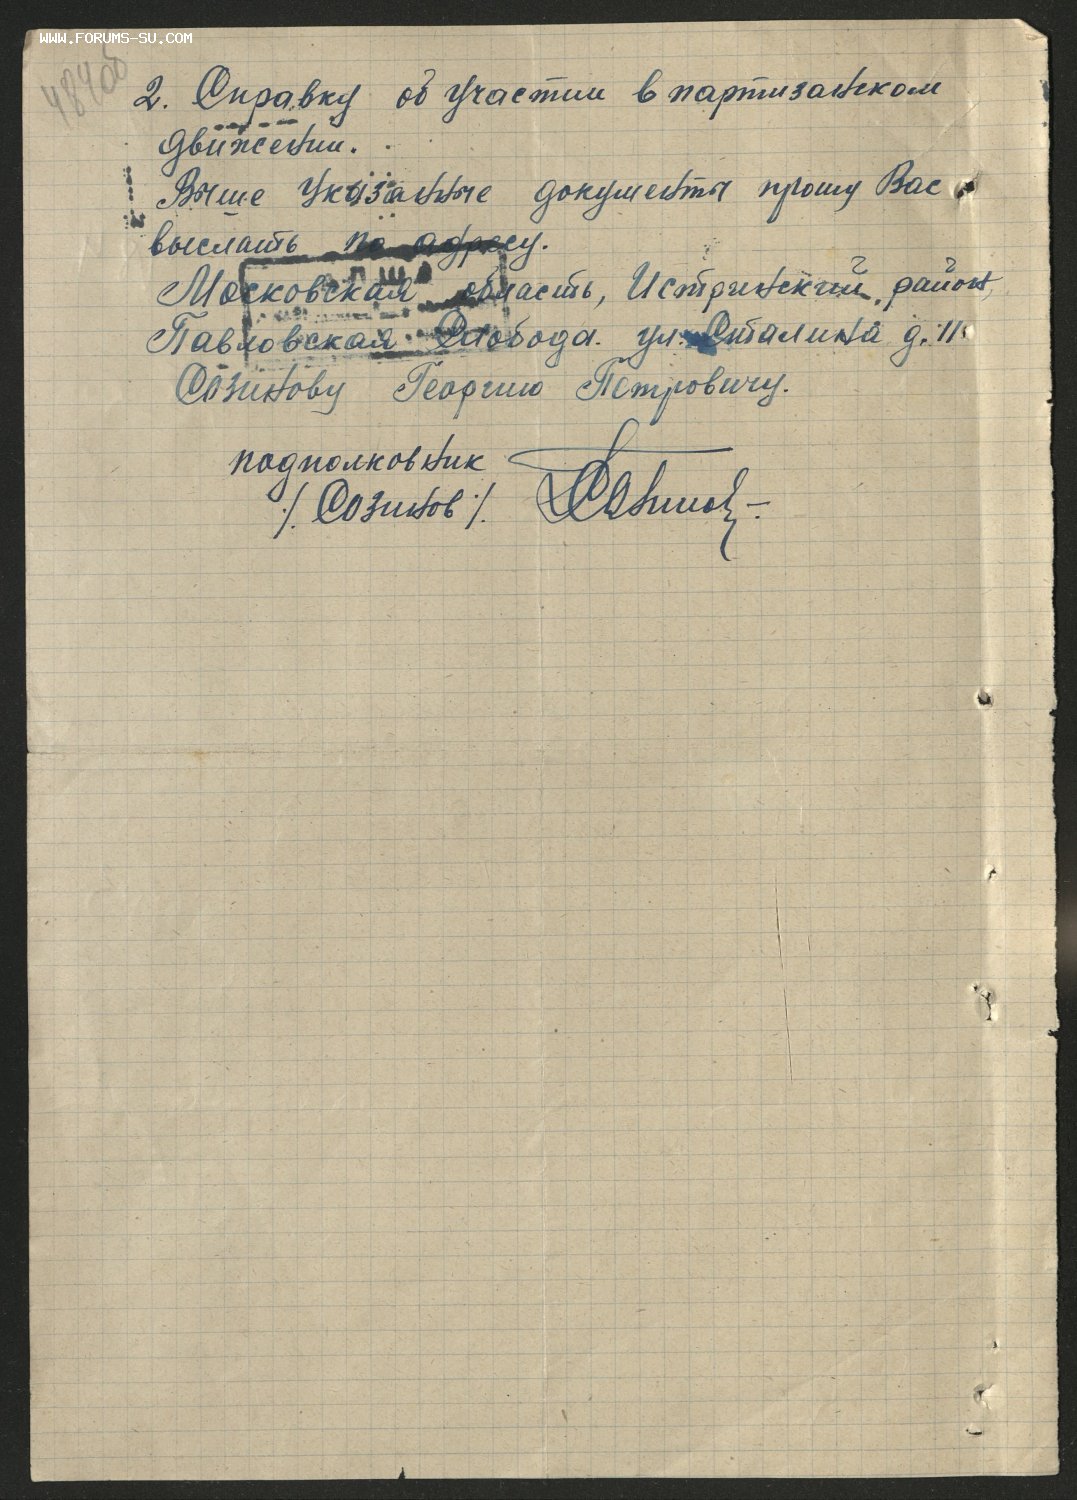 WWW.FORUMS-SU.COM
484об
2. Справку об участии в партизанском
движении.
Выше указанные документы прошу Вас
выслать по адресу.
Московская область, Истринский район,
Павловская Слобода. ул. Сталина д. 11
Созинову Георгию Петровичу.
подполковник
/. Созинов /.